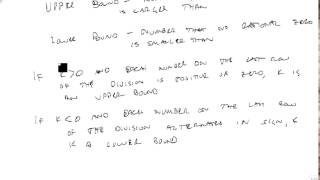 UPPER BOUND -
IS LARGER THAN
LOWER BOUND - NUMBER THAT NO RATIONAL ZERO
IS SMALLER THAN
IF K>0 AND EACH NUMBER ON THE LAST ROW
OF THE DIVISION IS POSITIVE OR ZERO, K IS
AN UPPER BOUND
IF K<0 AND EACH NUMBER ON THE LAST ROW
OF THE DIVISION ALTERNATES IN SIGN, K
IS A LOWER BOUND